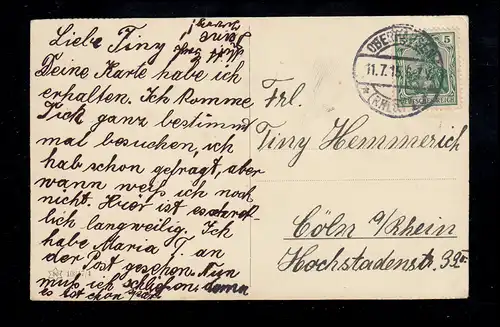 Liebe Tiny
Deine Karte habe ich
erhalten. Ich komme
Dich ganz bestimmt
mal besuchen, ich
hab schon gefragt, aber
wann weiß ich noch
nicht. Hier ist es schrek-
lich langweilig. Ich
habe Maria T. an
der Post gesehen. Nun
muß ich schließen, denn
es ist schon
5
11.7.15.6-7
Frl.
Tiny Hemmerich
Cöln a/Rhein
Hochstadenstr. 39